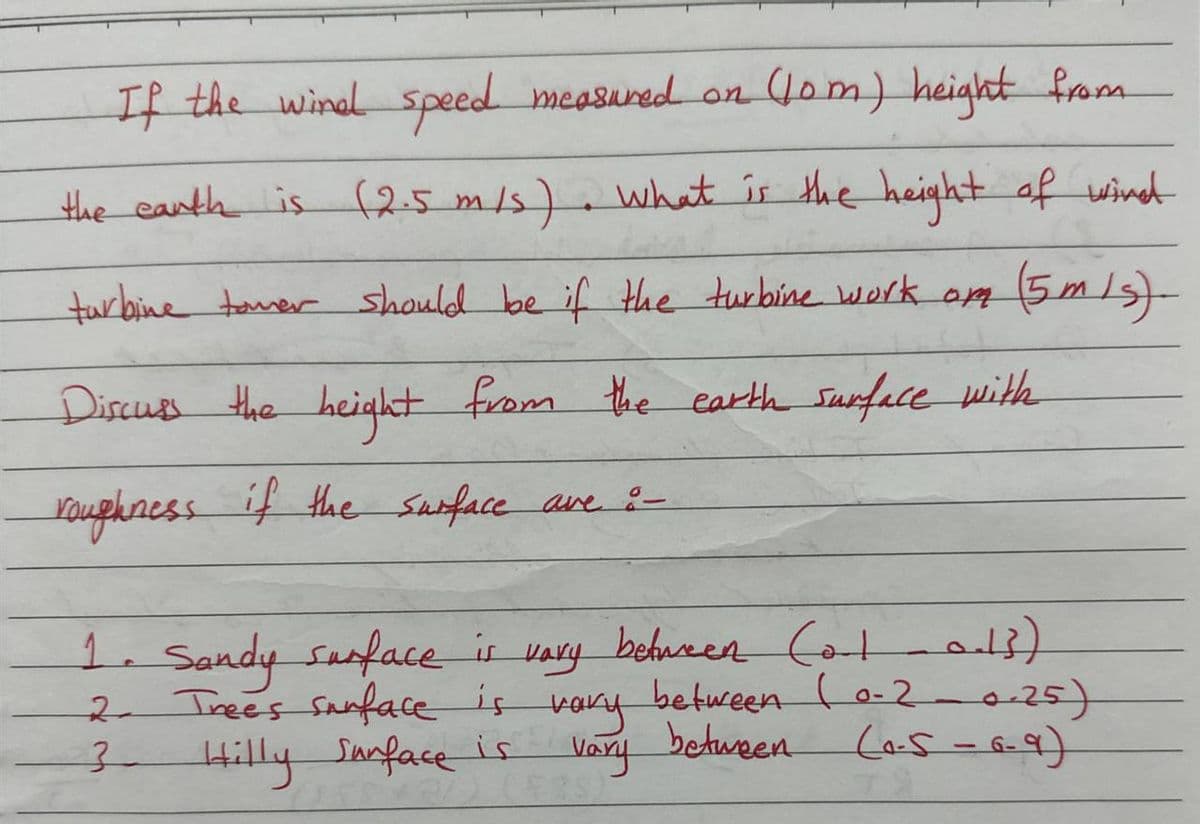 If the wind speed measured on (10m) height from
the earth is (2.5 m/s). what is the height of wind
turbine tower should be if the turbine work on (5m/s).
Discuss the height from the earth surface with
roughness if the surface are :-
1. Sandy surface is vary between (0.1 - 0.13)
2- Trees surface is vary between (0-2 - 0.25)
3- Hilly surface is vary between (0.5 - 0.9)